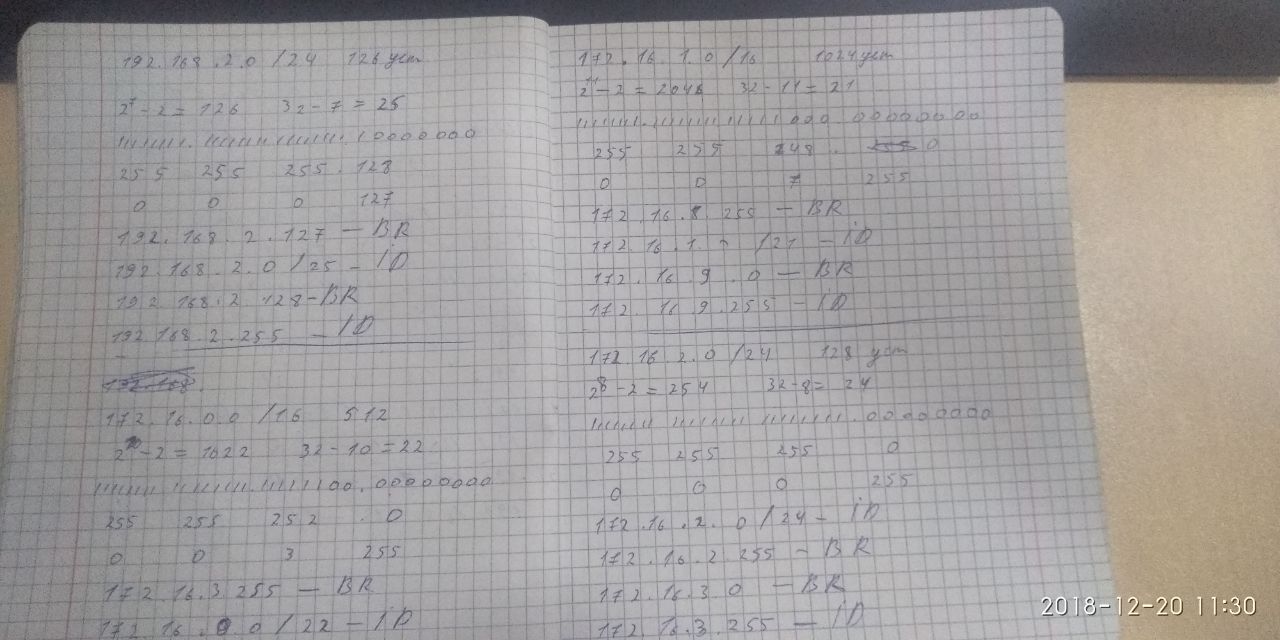 192.168.2.0 /24 126 уст
2⁷-2 = 126 32-7 = 25
11111111.11111111.11111111.10000000
255 255 255.128
0 0 0 127
192.168.2.127 — BR
192.168.2.0/25 - ID
192.168.2 128-BR
192.168.2.255 — ID
172.16.0.0 /16 512
2¹⁰-2 = 1022 32-10=22
11111111 11111111.11111100.00000000
255 255 252 .0
0 0 3 255
172.16.3.255 — BR
172.16.0.0/22 - ID
172.16.1.0/16 1024 уст
2¹¹-2 = 2046 32-11=21
11111111.11111111 11111000 00000000
255 255 248. 0
0 0 7 255
172.16.8.255 — BR
172.16.1. /21 - ID
172.16.9.0 — BR
172.16 9.255 — ID
172.16 2.0/24 128 уст
2⁸-2=254 32-8= 24
11111111 11111111 11111111.00000000
255 255 255 0
0 0 0 255
172.16.2.0/24- ID
172.16.2 255 - BR
172.16.3.0 — BR
172.16.3.255 — ID
2018-12-20 11:30